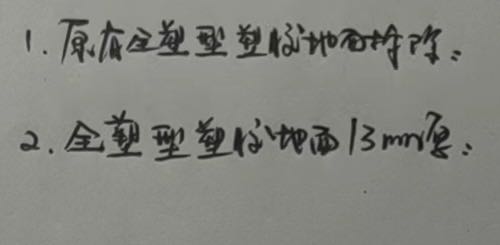 1. 原有全塑型塑胶地面拆除；
2. 全塑型塑胶地面13mm厚；